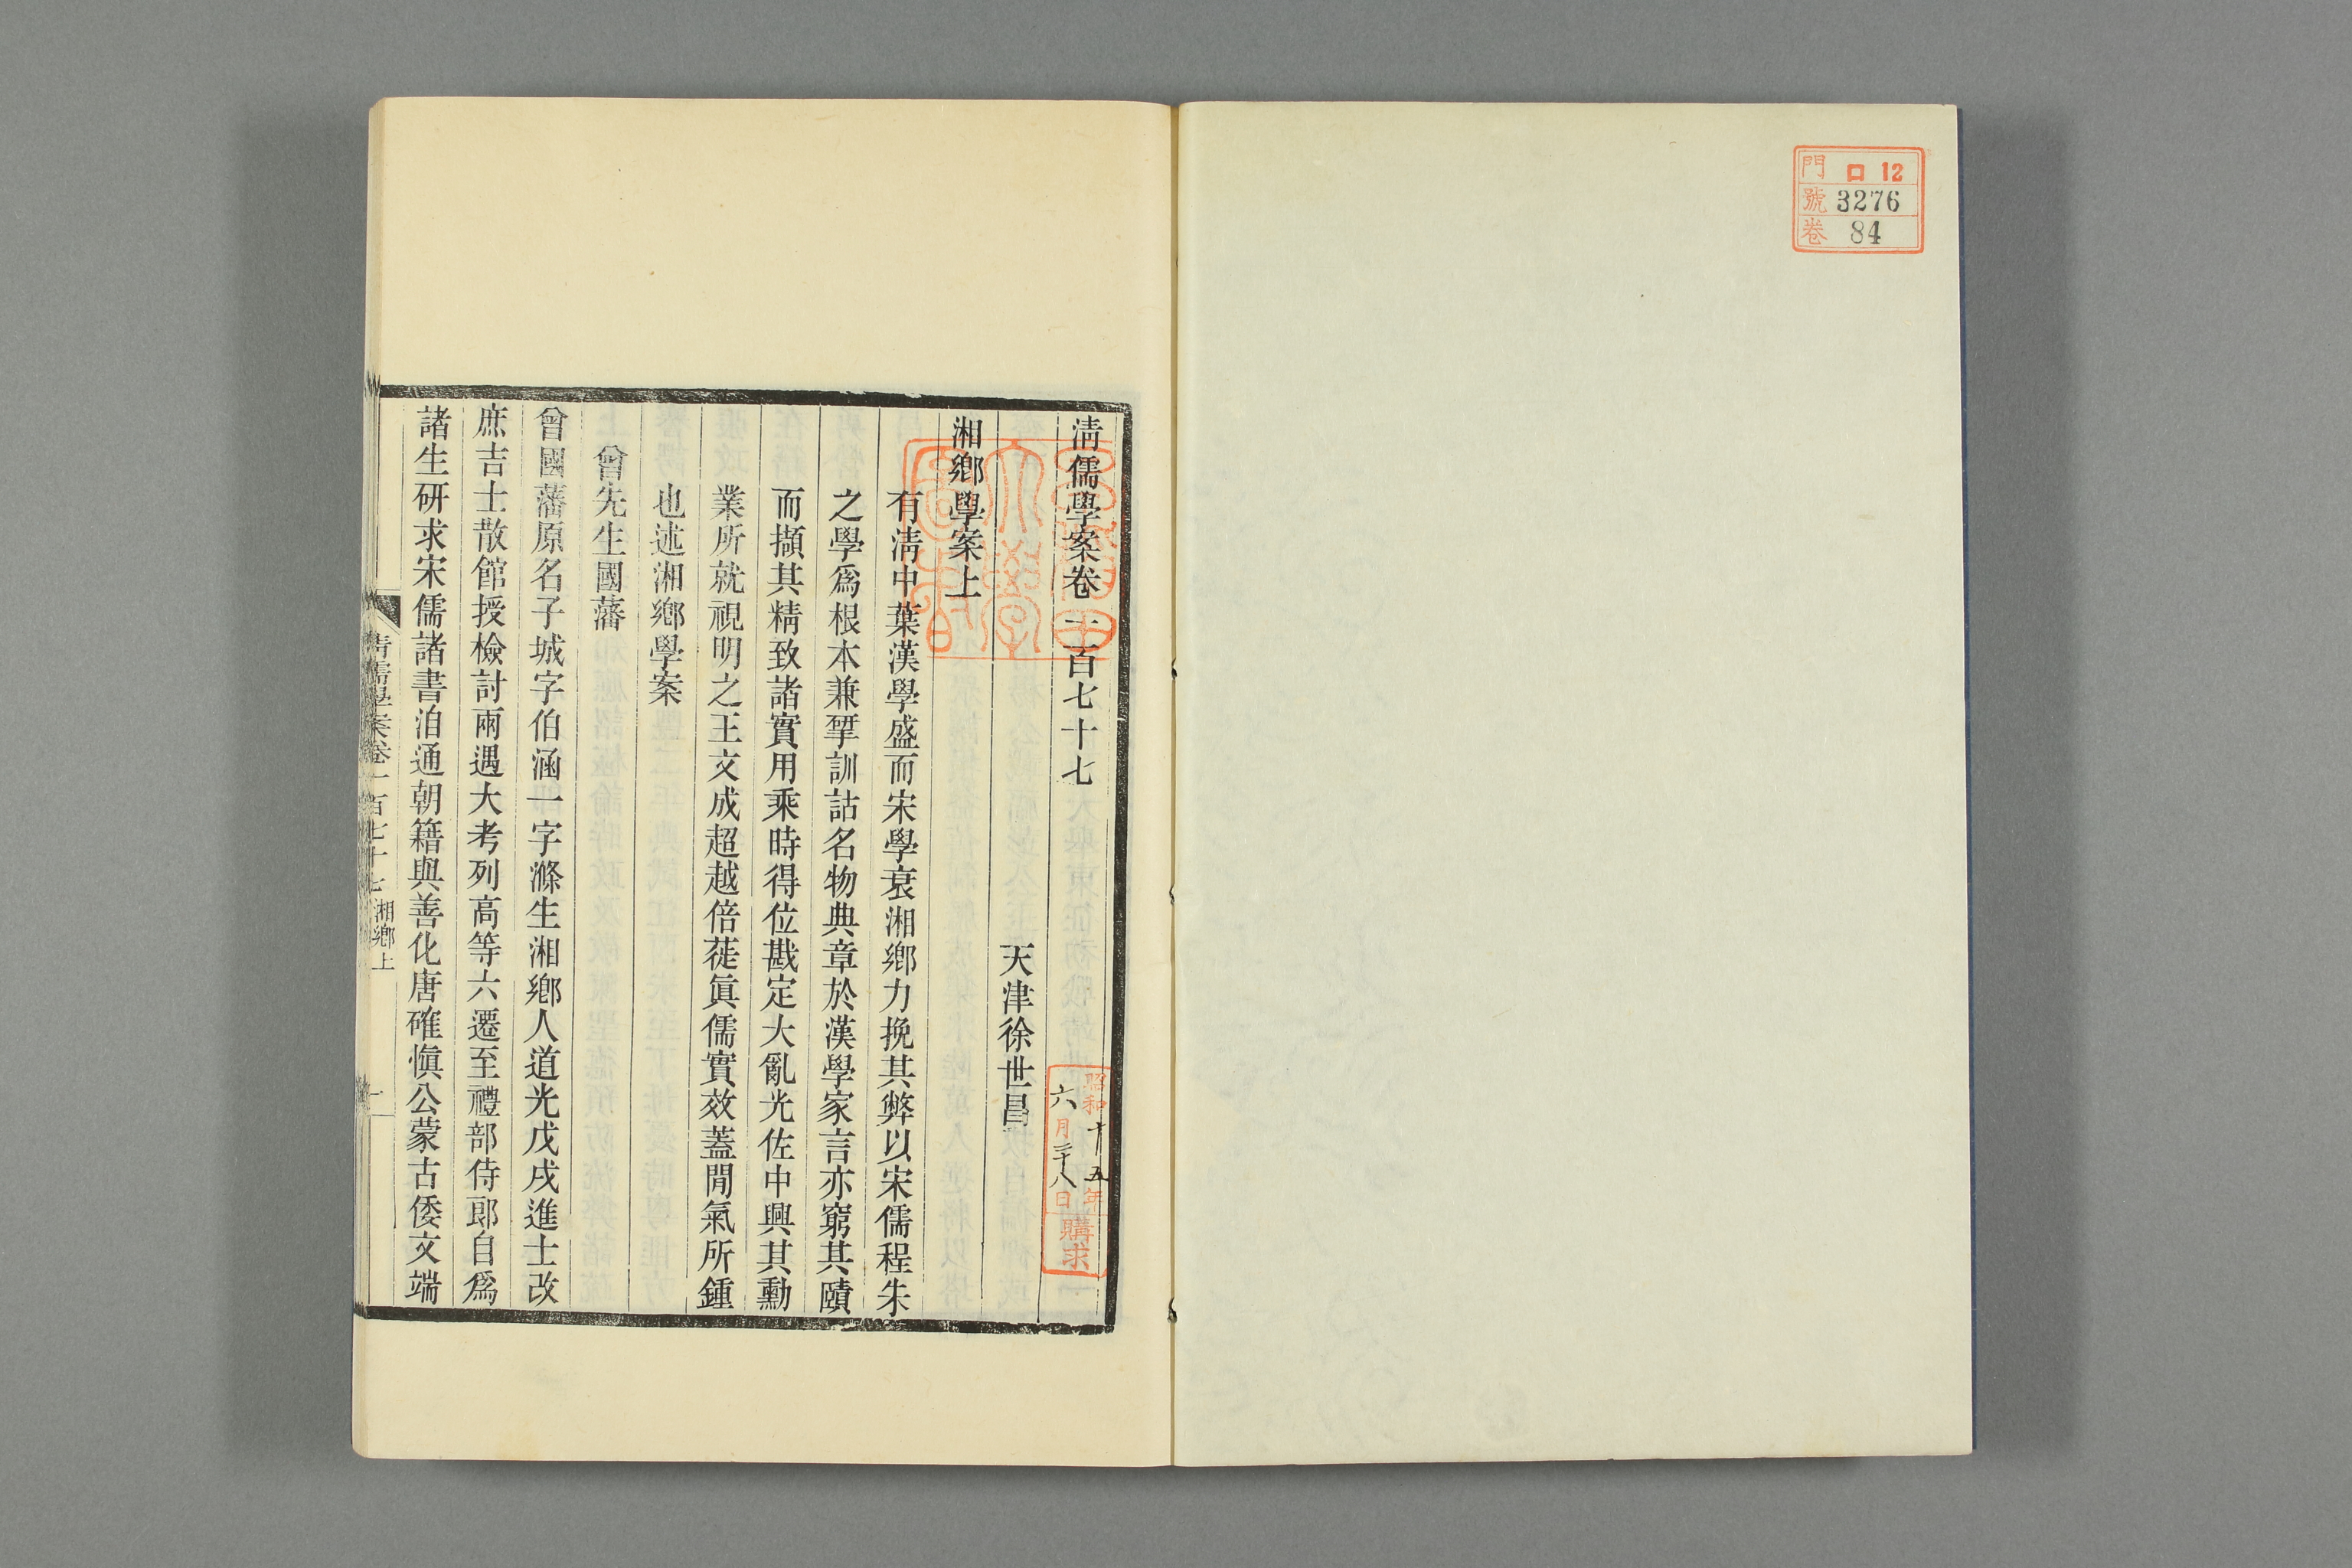 門 ロ 12
號 3276
卷 84
淸儒學案卷一百七十七
天津徐世昌
湘鄕學案上
有淸中葉漢學盛而宋學衰湘鄕力挽其弊以宋儒程朱
之學爲根本兼揅訓詁名物典章於漢學家言亦窮其賾
而擷其精致諸實用乘時得位戡定大亂光佐中興其勳
業所就視明之王文成超越倍蓰眞儒實效蓋閒氣所鍾
也述湘鄕學案
曾先生國藩
曾國藩原名子城字伯涵一字滌生湘鄕人道光戊戌進士改
庶吉士散館授檢討兩遇大考列高等六遷至禮部侍郞自爲
諸生研求宋儒諸書洎通朝籍與善化唐確愼公蒙古倭文端
淸儒學案卷一百七十七 湘鄕上
一
昭和十五年
六月二十八日
購求